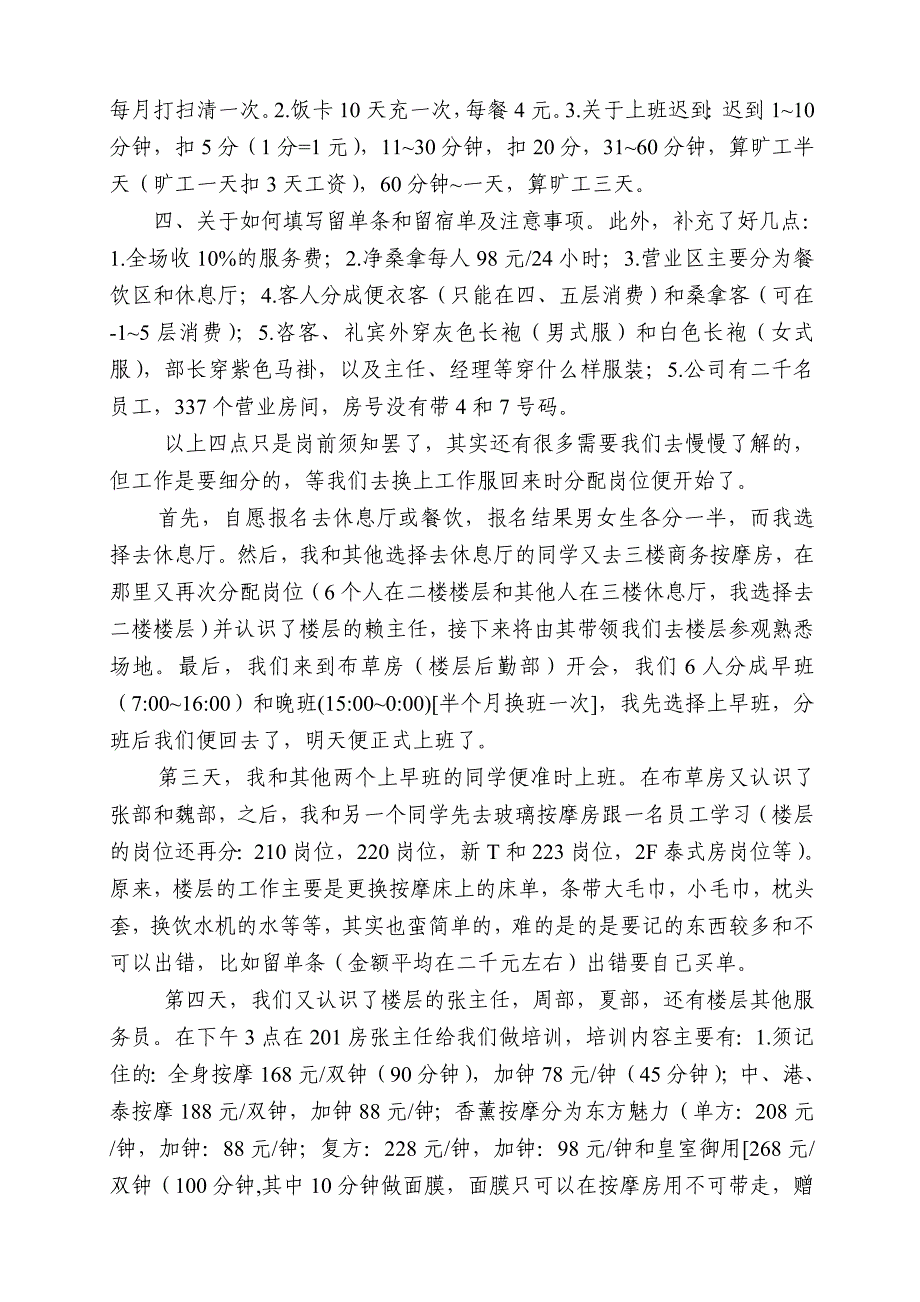 每月打扫清一次。2.饭卡 10 天充一次，每餐 4 元。3.关于上班迟到：迟到 1~10
分钟，扣 5 分（1 分=1 元），11~30 分钟，扣 20 分，31~60 分钟，算旷工半
天（旷工一天扣 3 天工资），60 分钟~一天，算旷工三天。
四、关于如何填写留单条和留宿单及注意事项。此外，补充了好几点：
1.全场收 10%的服务费；2.净桑拿每人 98 元/24 小时；3.营业区主要分为餐
饮区和休息厅；4.客人分成便衣客（只能在四、五层消费）和桑拿客（可在
-1~5 层消费）；5.咨客、礼宾外穿灰色长袍（男式服）和白色长袍（女式
服），部长穿紫色马褂，以及主任、经理等穿什么样服装；5.公司有二千名
员工，337 个营业房间，房号没有带 4 和 7 号码。
以上四点只是岗前须知罢了，其实还有很多需要我们去慢慢了解的，
但工作是要细分的，等我们去换上工作服回来时分配岗位便开始了。
首先，自愿报名去休息厅或餐饮，报名结果男女生各分一半，而我选
择去休息厅。然后，我和其他选择去休息厅的同学又去三楼商务按摩房，在
那里又再次分配岗位（6 个人在二楼楼层和其他人在三楼休息厅，我选择去
二楼楼层）并认识了楼层的赖主任，接下来将由其带领我们去楼层参观熟悉
场地。最后，我们来到布草房（楼层后勤部）开会，我们 6 人分成早班
（7:00~16:00）和晚班(15:00~0:00)[半个月换班一次]，我先选择上早班，分
班后我们便回去了，明天便正式上班了。
第三天，我和其他两个上早班的同学便准时上班。在布草房又认识了
张部和魏部，之后，我和另一个同学先去玻璃按摩房跟一名员工学习（楼层
的岗位还再分：210 岗位，220 岗位，新 T 和 223 岗位，2F 泰式房岗位等）。
原来，楼层的工作主要是更换按摩床上的床单，条带大毛巾，小毛巾，枕头
套，换饮水机的水等等，其实也蛮简单的，难的是的是要记的东西较多和不
可以出错，比如留单条（金额平均在二千元左右）出错要自己买单。
第四天，我们又认识了楼层的张主任，周部，夏部，还有楼层其他服
务员。在下午 3 点在 201 房张主任给我们做培训，培训内容主要有：1.须记
住的：全身按摩 168 元/双钟（90 分钟），加钟 78 元/钟（45 分钟）；中、港、
泰按摩 188 元/双钟，加钟 88 元/钟；香薰按摩分为东方魅力（单方：208 元
/钟，加钟：88 元/钟；复方：228 元/钟，加钟：98 元/钟和皇室御用[268 元/
双钟（100 分钟,其中 10 分钟做面膜，面膜只可以在按摩房用不可带走，赠